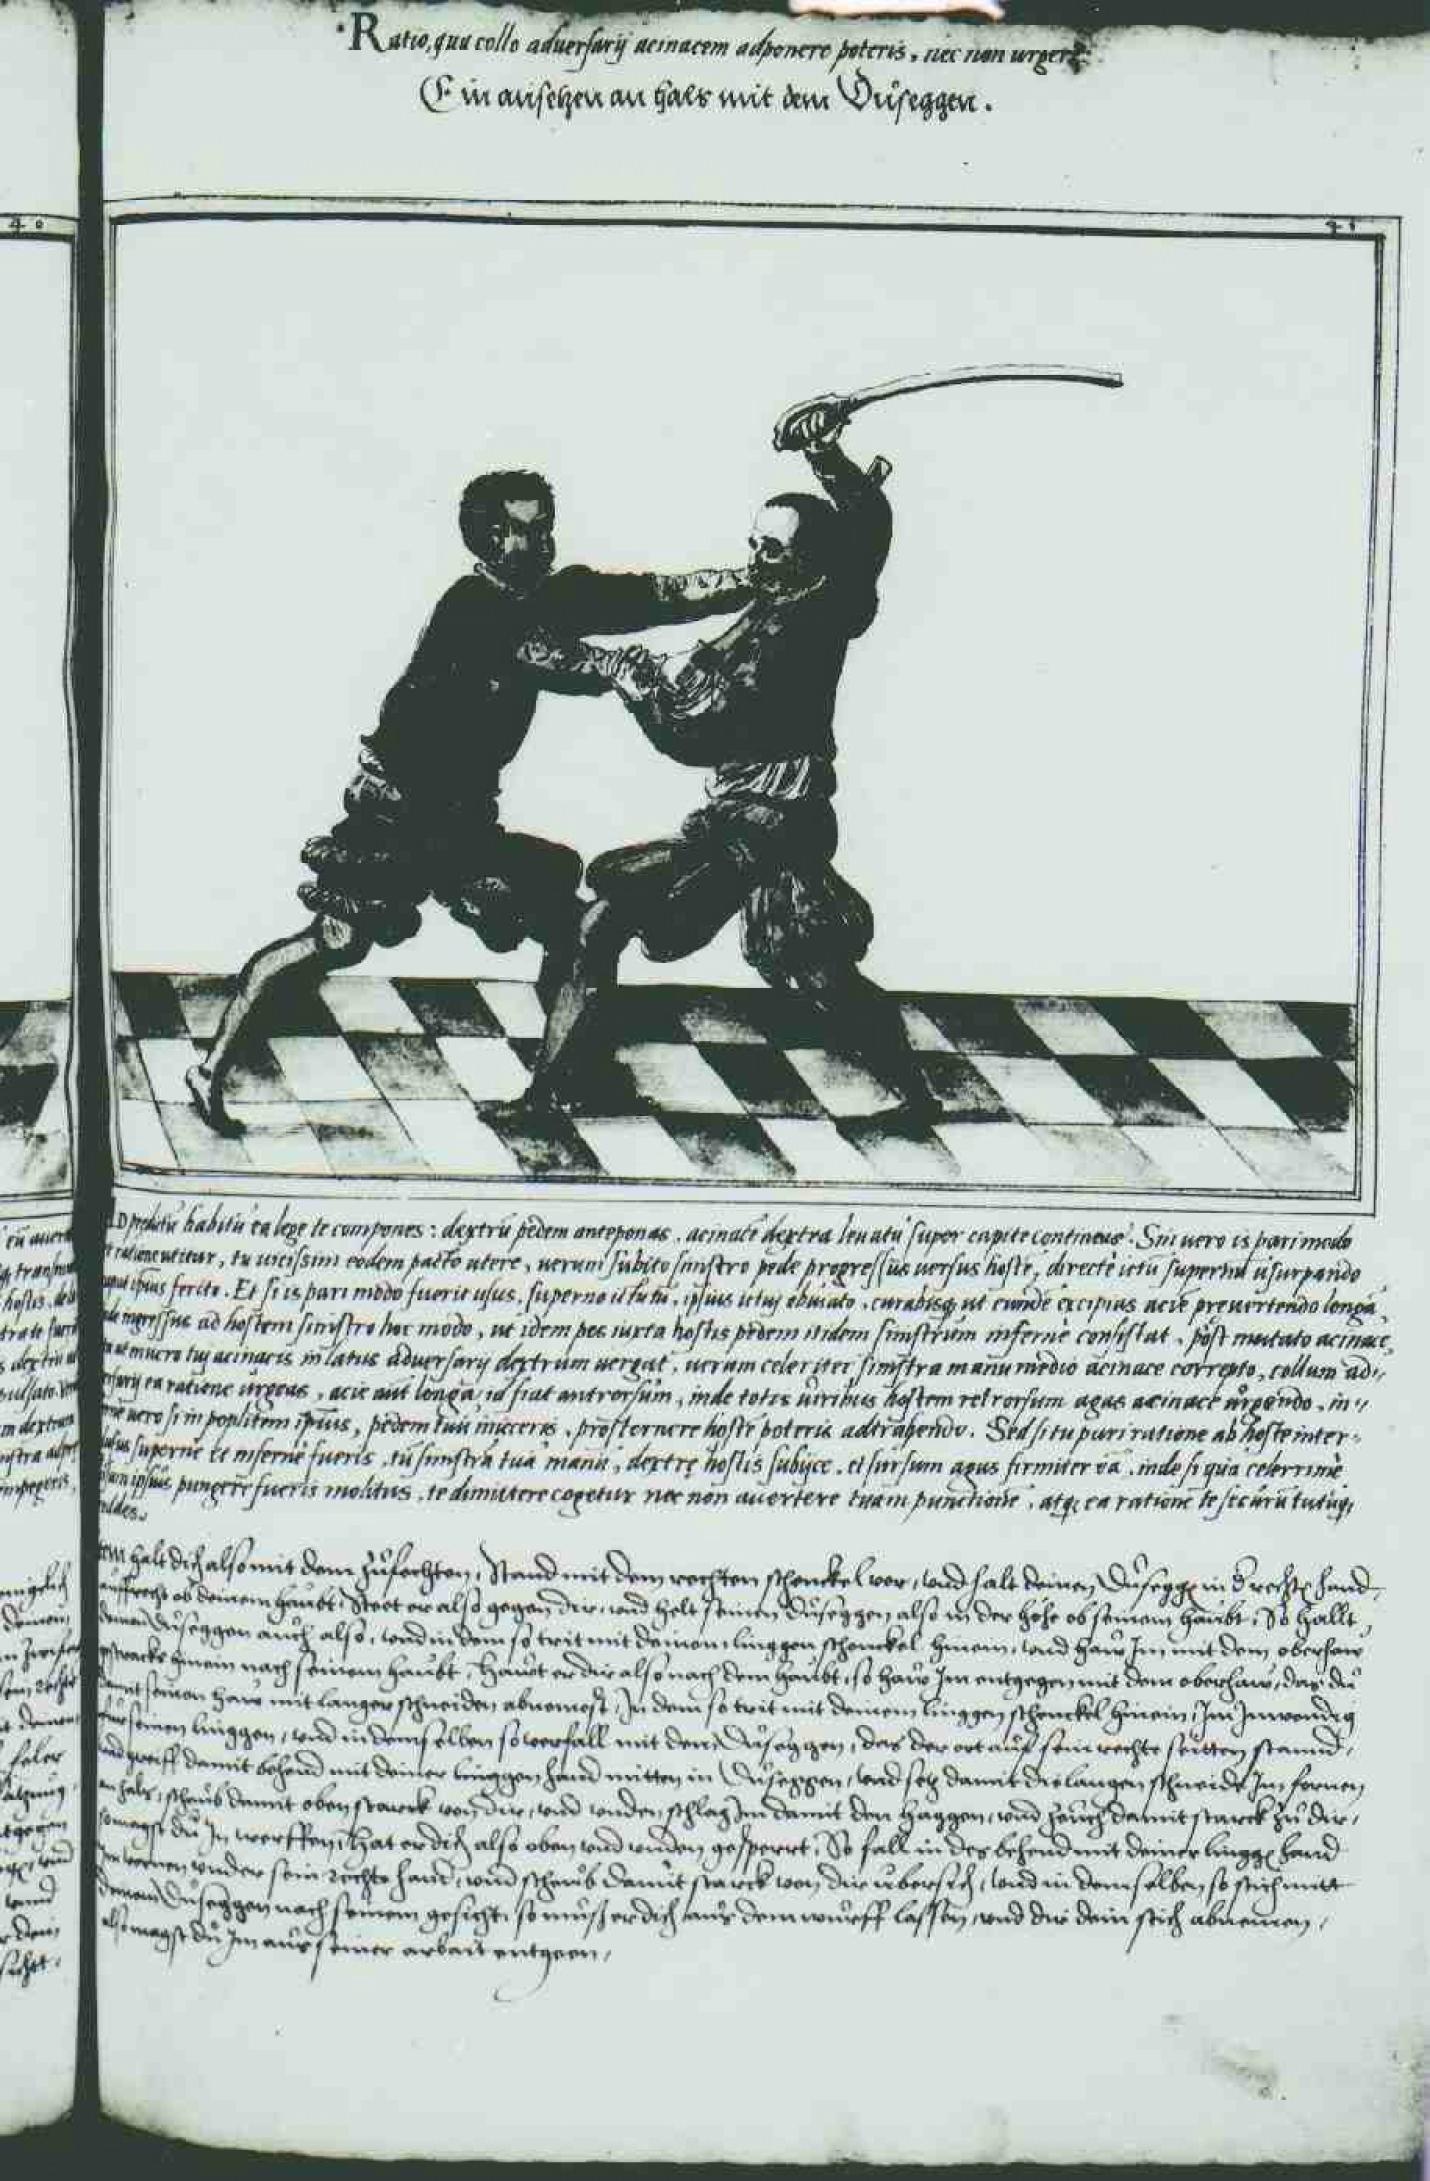 Ratio, qua collo adversarij acinacem adponere poteris, nec non urgere.
Ein ansetzen an hals mit dem Duseggen.
40
41
habitū ea lege te compones: dextrū pedem anteponas, acinacē dextra levatū super capite contineas. Sin vero is pari modo
ratione utetur, tu vicissim eodem pacto utere, verum subito sinistro pede progressus versus hostē, directè ictu superno usurpando
caput ipsius ferito. Et si is pari modo fuerit usus, superno ictu tu, ipsius ictui obviato, curabisq; ut eundē excipias acie prevertendo longa
ingressus ad hostem sinistro hoc modo, ut idem pes iuxta hostis pedem itidem sinistrum infernè consistat, post mutato acinace,
ut mucro tuj acinacis in latus adversarij dextrum vergat, verum celeriter sinistra manu medio acinace correpto, collum ad,,
ea ratione urgeas, acie aūt longa id fiat antrorsum, inde totis viribus hostem retrorsum agas acinace urgendo, in,,
vero si in poplitem ipsius, pedem tuū inieceris, prosternere hostē poteris adtrahendo. Sed si tu pari ratione ab hoste inter,,
superne et inferne fueris, tu sinistrā tuā manū, dextrę hostis subijce, et sursum agas firmiter eā, inde si qua celerrimè
ipsius pungere fueris molitus, te dimittere cogetur nec non avertere tuam punctionē, atq; ea ratione te securū tutūq;
halt dich also mit dem zufechten, Stand mit dem rechten schenckel vor, und halt deinen Duseggen in der rechten hand
auffrecht ob deinem haubt, Steet er also gegen dir, und helt seinen duseggen also in der höhe ob seinem haubt, So hallt
deinen duseggen auch also, und in dem so trit mit deinem linggen schenckel hinein, und haw Im mit dem oberhaw
hinein nach seinem haubt, Hawt er dir also nach dem haubt, so haw Im entgegen mit dem oberhaw, das du
damit seinen haw mit langer schneiden abnemest, In dem so trit mit deinem linggen schenckel hinein, Im Inwendig
seinen linggen, und in demselben so verfall mit dem Duseggen, das der ort auf sein rechte seitten stannd,
greiff damit behend mit deiner linggen hand mitten in Duseggen, und setz damit die langen schneide Im fornen
an hals, scheub damit oben starck von dir, und unden schlag Im damit den haggen, und zeuch damit starck zu dir,
so magst du In werffen, Hat er dich also oben und unden gesperrt, So fall in des behend mit deiner lingge hand
under sein rechte hand, und scheub damit starck von dir ubersich, und in demselben so stich mitt
deinem Duseggen nach seinem gesicht, so muß er dich aus dem wurff lassen, und dir dein stich abnemen,
also magst du Im aus seiner arbait entgeen,